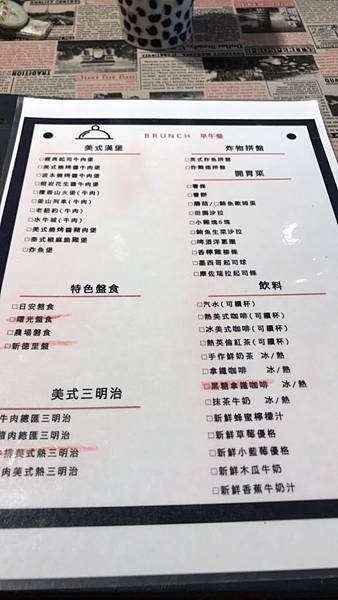 BRUNCH 早午餐
美式漢堡
□經典起司牛肉堡
□美式燒烤醬牛肉堡
□波本燒烤醬牛肉堡
□熔岩花生醬牛肉堡
□檀香山火堡(牛肉)
□釜山列車(牛肉)
□老紐約(牛肉)
□水牛城(牛肉)
□美式燒烤醬豬肉堡
□泰式椒麻脆雞堡
□炸魚堡
特色盤食
□日安盤食
□曙光盤食
□農場盤食
□新德里盤
美式三明治
牛肉總匯三明治
肉總匯三明治
美式熱三明治
肉美式熱三明治
炸物拼盤
□英式炸魚拼盤
□炸雞翅拼盤
開胃菜
□薯條
□薯餅
□蘑菇/□鮪魚歐姆蛋
□田園沙拉
□小雞塊6塊
□鮪魚生菜沙拉
□啤酒洋蔥圈
□香檸雞柳條
□墨西哥起司球
□摩佐瑞拉起司條
飲料
□汽水(可續杯)
□熱美式咖啡(可續杯)
□冰美式咖啡(可續杯)
□熱英倫紅茶(可續杯)
□手作鮮奶茶 冰/熱
□拿鐵咖啡 冰/熱
□黑糖拿鐵咖啡 冰/熱
□抹茶牛奶 冰/熱
□新鮮蜂蜜檸檬汁
□新鮮草莓優格
□新鮮小藍莓優格
□新鮮木瓜牛奶
□新鮮香蕉牛奶汁